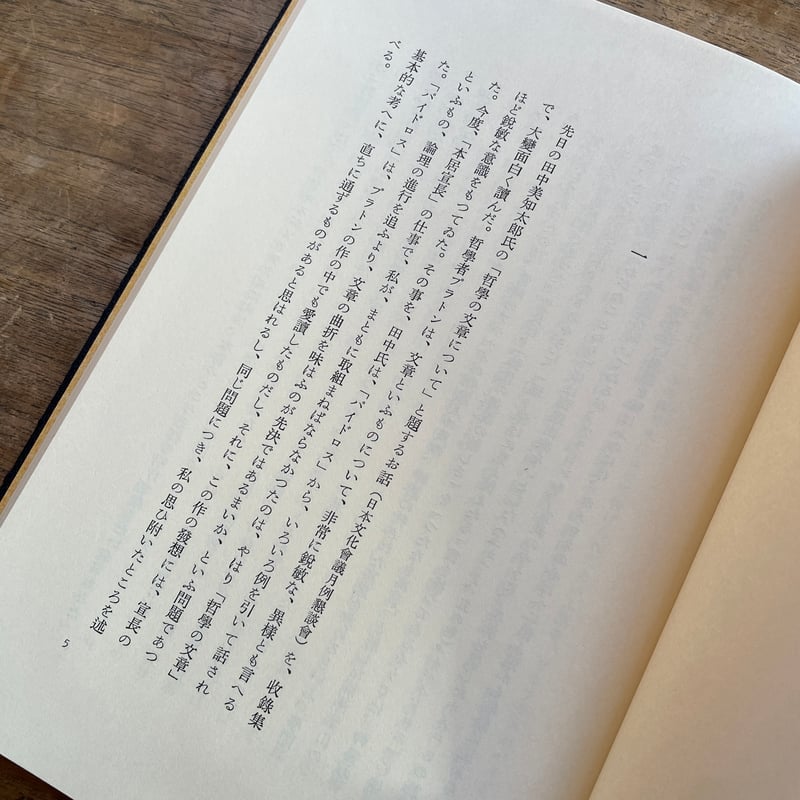 一
先日の田中美知太郎氏の「哲學の文章について」と題するお話（日本文化會議月例懇談會）を、收錄集
で、大變面白く讀んだ。哲學者プラトンは、文章といふものについて、非常に銳敏な、異樣とも言へる
ほど銳敏な意識をもつてゐた。その事を、田中氏は、「パイドロス」から、いろいろ例を引いて話され
た。今度、「本居宣長」の仕事で、私が、まともに取組まねばならなかつたのは、やはり「哲學の文章」
といふもの、論理の進行を追ふより、文章の曲折を味はふのが先決ではあるまいか、といふ問題であつ
た。「パイドロス」は、プラトンの作の中でも愛讀したものだし、それに、この作の發想には、宣長の
基本的な考へに、直ちに通ずるものがあると思はれるし、同じ問題につき、私の思ひ附いたところを述
べる。
5